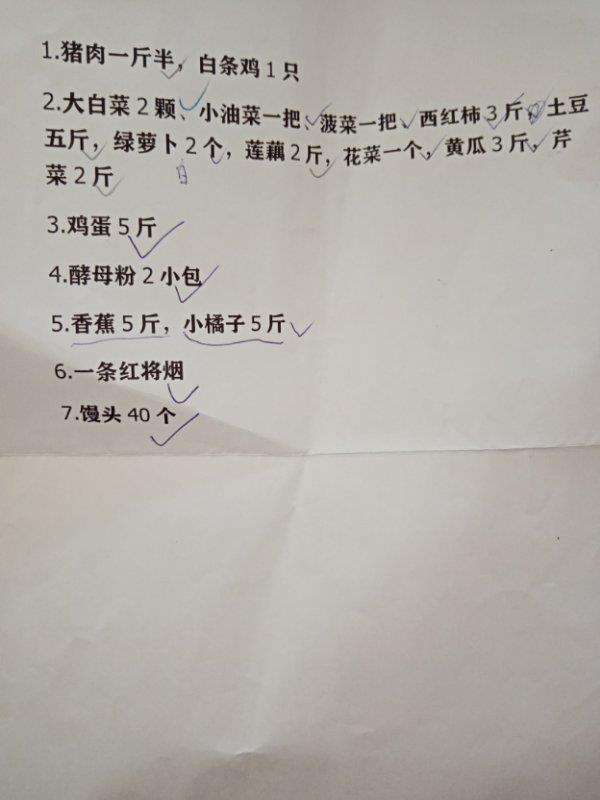 1.猪肉一斤半，白条鸡1只
2.大白菜2颗、小油菜一把、菠菜一把、西红柿3斤，土豆
五斤，绿萝卜2个，莲藕2斤，花菜一个，黄瓜3斤，芹
菜2斤
3.鸡蛋5斤
4.酵母粉2小包
5.香蕉5斤，小橘子5斤
6.一条红将烟
7.馒头40个